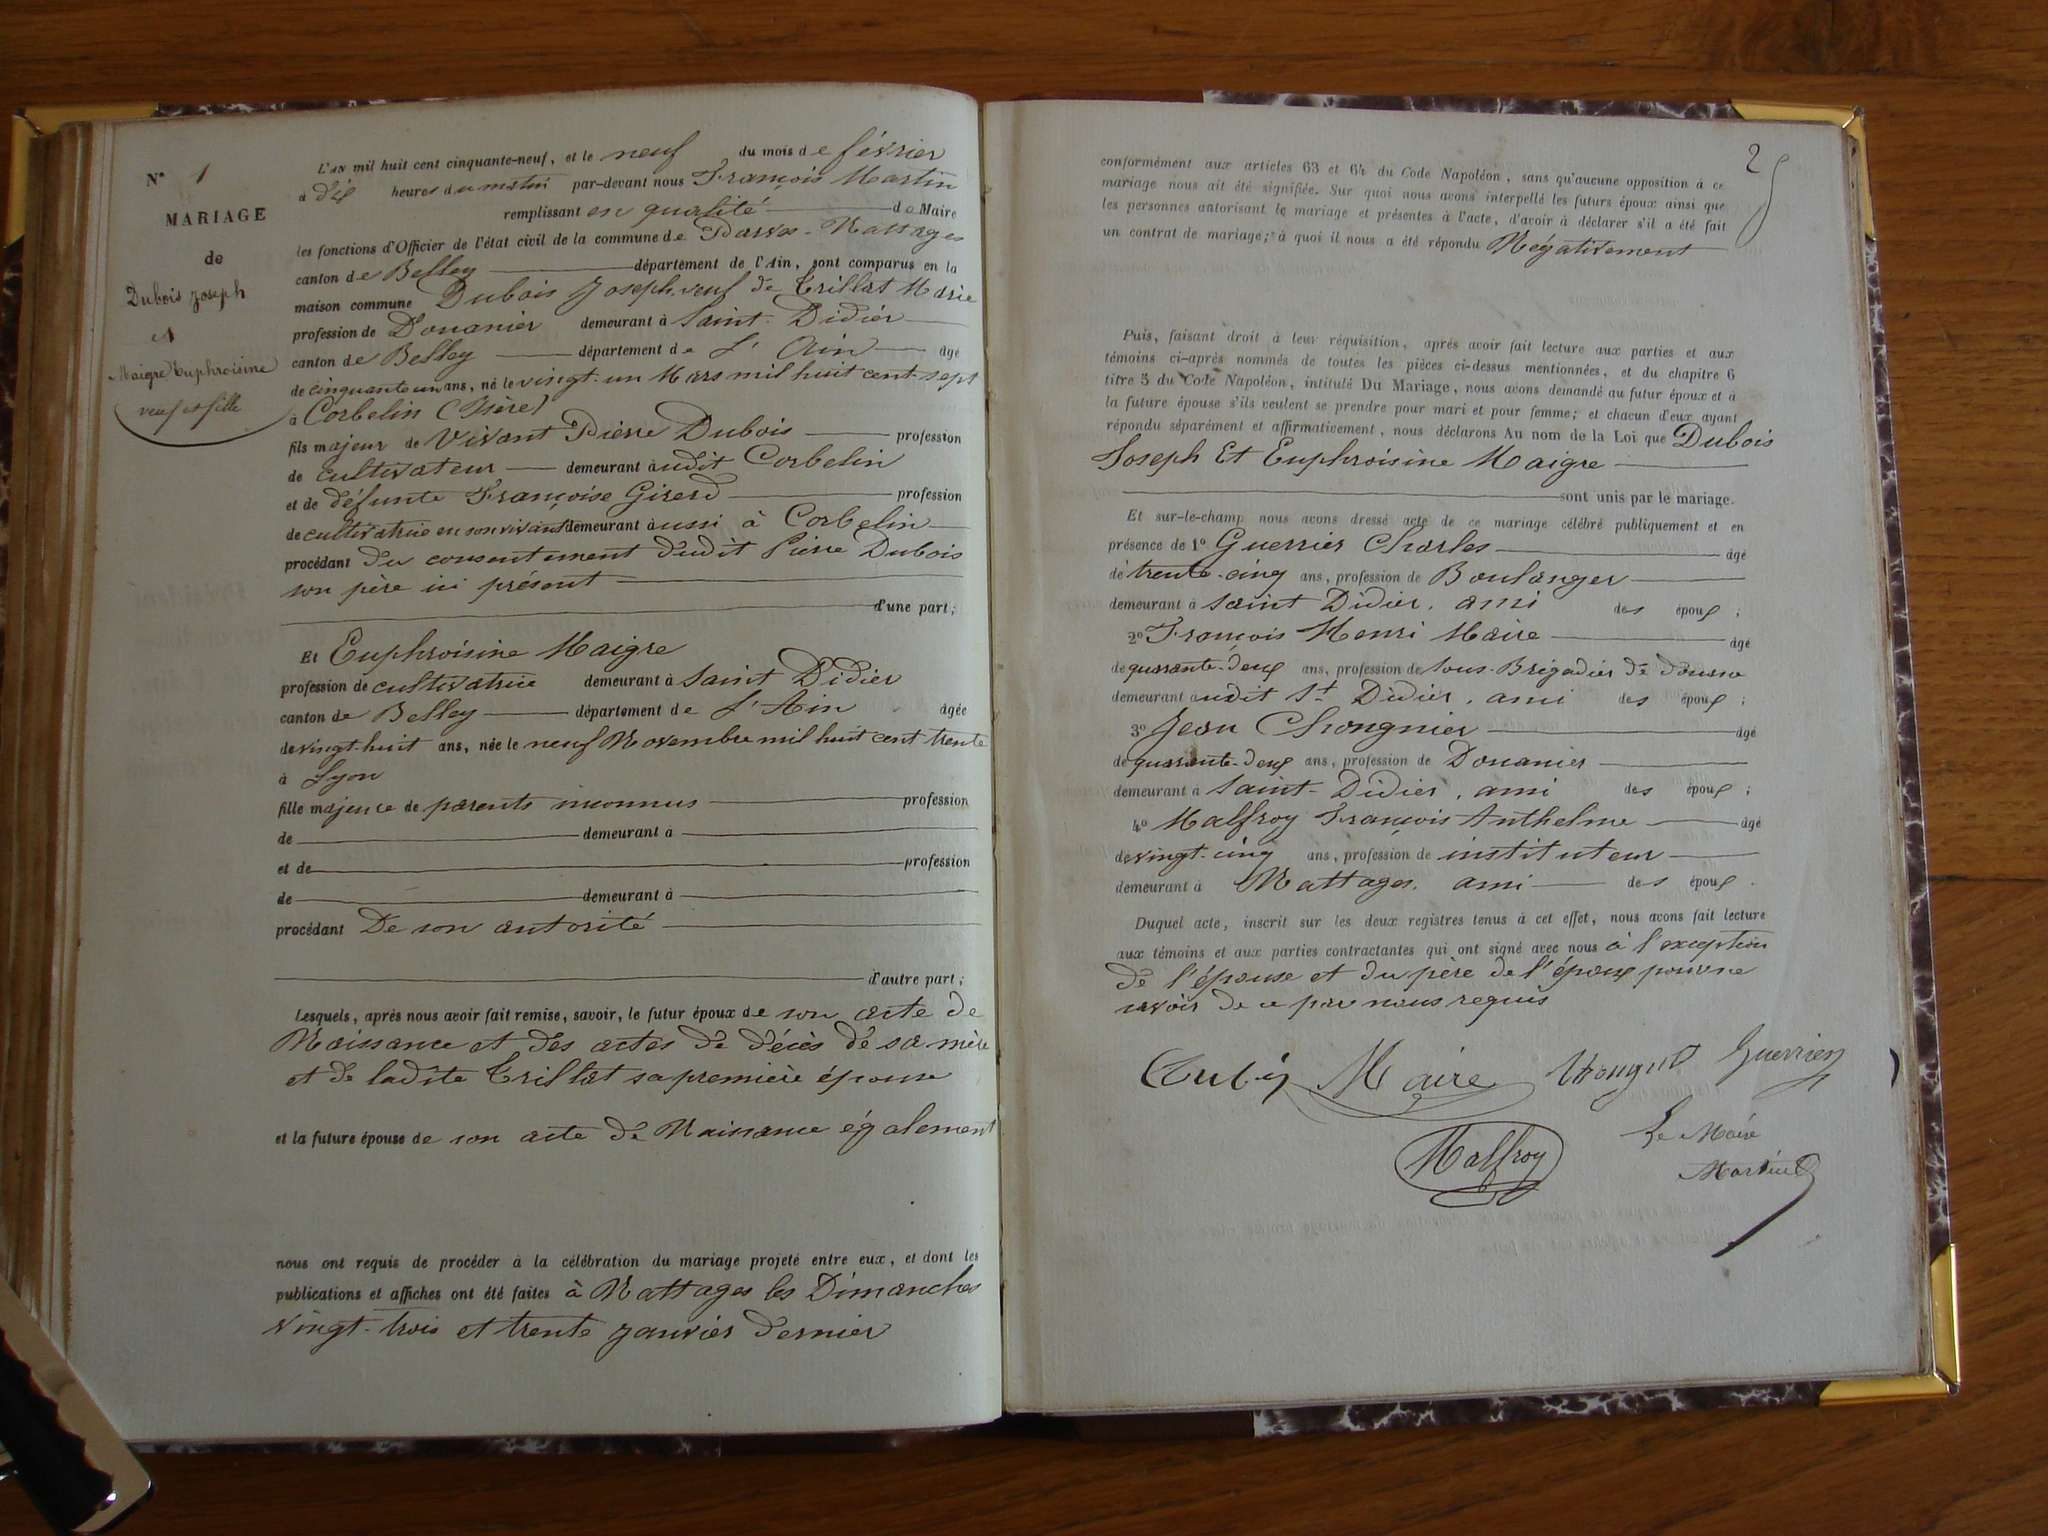 N° 1
MARIAGE
de
Dubois Joseph
et
Maigre Euphroisine
veuf et fille
L'AN mil huit cent cinquante-neuf, et le neuf du mois de février
à dix heures du matin par-devant nous François Martin
remplissant en qualité de Maire
les fonctions d'Officier de l'état civil de la commune de Parves-Nattages
canton de Belley département de l'Ain, sont comparus en la
maison commune Dubois Joseph veuf de Trillat Marie
profession de Douanier demeurant à Saint-Didier
canton de Belley département de L'Ain âgé
de cinquante un ans, né le vingt-un Mars mil huit cent sept
à Corbelin (Isère)
fils majeur de Vivant Pierre Dubois profession
de cultivateur demeurant àudit Corbelin
et de défunte Françoise Girerd profession
de cultivatrice en son vivant demeurant àussi à Corbelin
procédant du consentement dudit Pierre Dubois
son père ici présent
d'une part;
Et Euphroisine Maigre
profession de cultivatrice demeurant à Saint Didier
canton de Belley département de L'Ain âgée
de vingt-huit ans, née le neuf Novembre mil huit cent trente
à Lyon
fille majeure de parents inconnus profession
de demeurant à
et de profession
de demeurant à
procédant De son autorité
d'autre part;
Lesquels, après nous avoir fait remise, savoir, le futur époux de son acte de
Naissance et des actes de décès de sa mère
et de ladite Trillat sa première épouse
et la future épouse de son acte de Naissance également
nous ont requis de procéder à la célébration du mariage projeté entre eux, et dont les
publications et affiches ont été faites à Nattages les Dimanches
vingt-trois et trente janvier dernier
2
conformément aux articles 63 et 64 du Code Napoléon, sans qu'aucune opposition à ce
mariage nous ait été signifiée. Sur quoi nous avons interpellé les futurs époux ainsi que
les personnes autorisant le mariage et présentes à l'acte, d'avoir à déclarer s'il a été fait
un contrat de mariage; à quoi il nous a été répondu Négativement
Puis, faisant droit à leur réquisition, après avoir fait lecture aux parties et aux
témoins ci-après nommés de toutes les pièces ci-dessus mentionnées, et du chapitre 6
titre 5 du Code Napoléon, intitulé Du Mariage, nous avons demandé au futur époux et à
la future épouse s'ils veulent se prendre pour mari et pour femme; et chacun d'eux ayant
répondu séparément et affirmativement, nous déclarons Au nom de la Loi que Dubois
Joseph Et Euphroisine Maigre
sont unis par le mariage.
Et sur-le-champ nous avons dressé acte de ce mariage célébré publiquement et en
présence de 1° Guerrier Charles âgé
de trente-cinq ans, profession de Boulanger
demeurant à Saint Didier, ami des époux;
2° François Henri Maire âgé
de quarante-deux ans, profession de Sous-Brigadier de douane
demeurant audit St Didier, ami des époux;
3° Jean Chongnier âgé
de quarante-deux ans, profession de Douanier
demeurant à Saint-Didier, ami des époux;
4° Malfroy François Anthelme âgé
de vingt-cinq ans, profession de instituteur
demeurant à Nattages, ami des époux.
Duquel acte, inscrit sur les deux registres tenus à cet effet, nous avons fait lecture
aux témoins et aux parties contractantes qui ont signé avec nous à l'exception
de l'épouse et du père de l'époux pour ne
savoir de ce par nous requis
Maire Guerrier
Le Maire
Malfroy
Martin